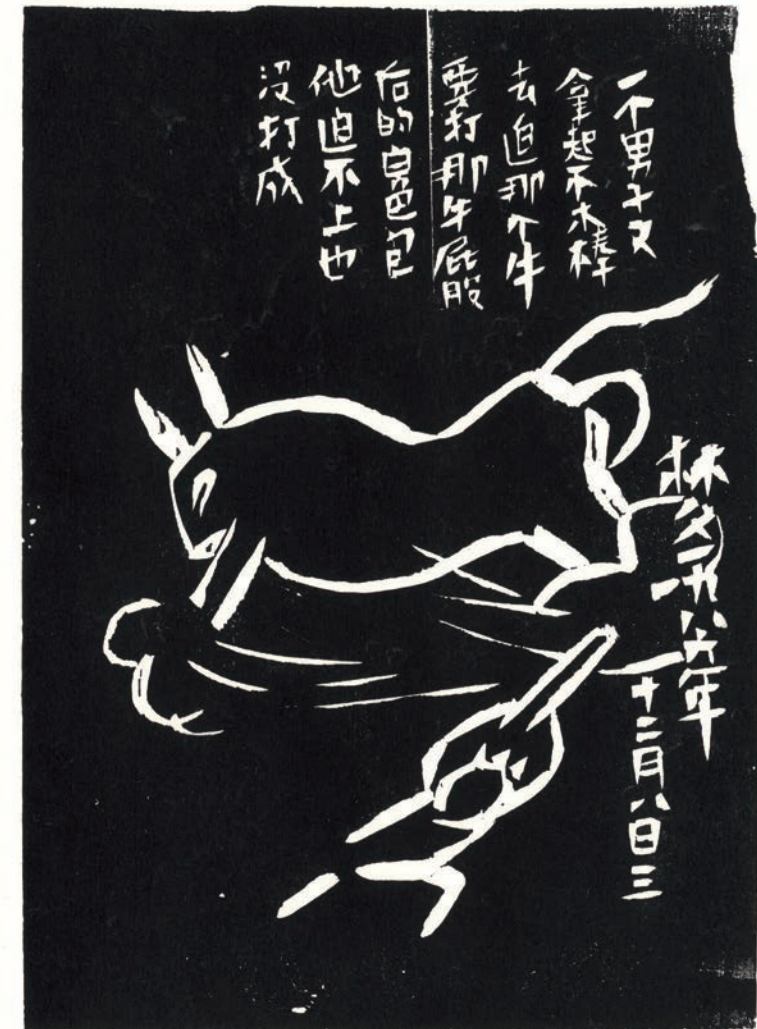 一个男子又
拿起个木棒
去追那个牛
要打那牛屁股
后的包
他追不上也
没打成
林一九八六年
十二月八日三